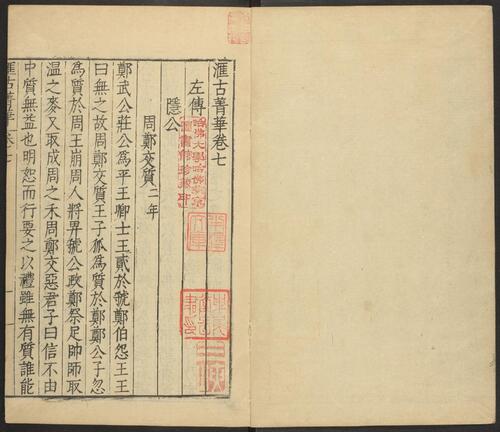 滙古菁華卷七
左傳
隱公
周鄭交質三年
鄭武公莊公爲平王卿士王貳於虢鄭伯怨王王
曰無之故周鄭交質王子狐爲質於鄭鄭公子忽
爲質於周王崩周人將畀虢公政鄭祭足帥師取
溫之麥又取成周之禾周鄭交惡君子曰信不由
中質無益也明恕而行要之以禮雖無有質誰能
滙古菁華卷七